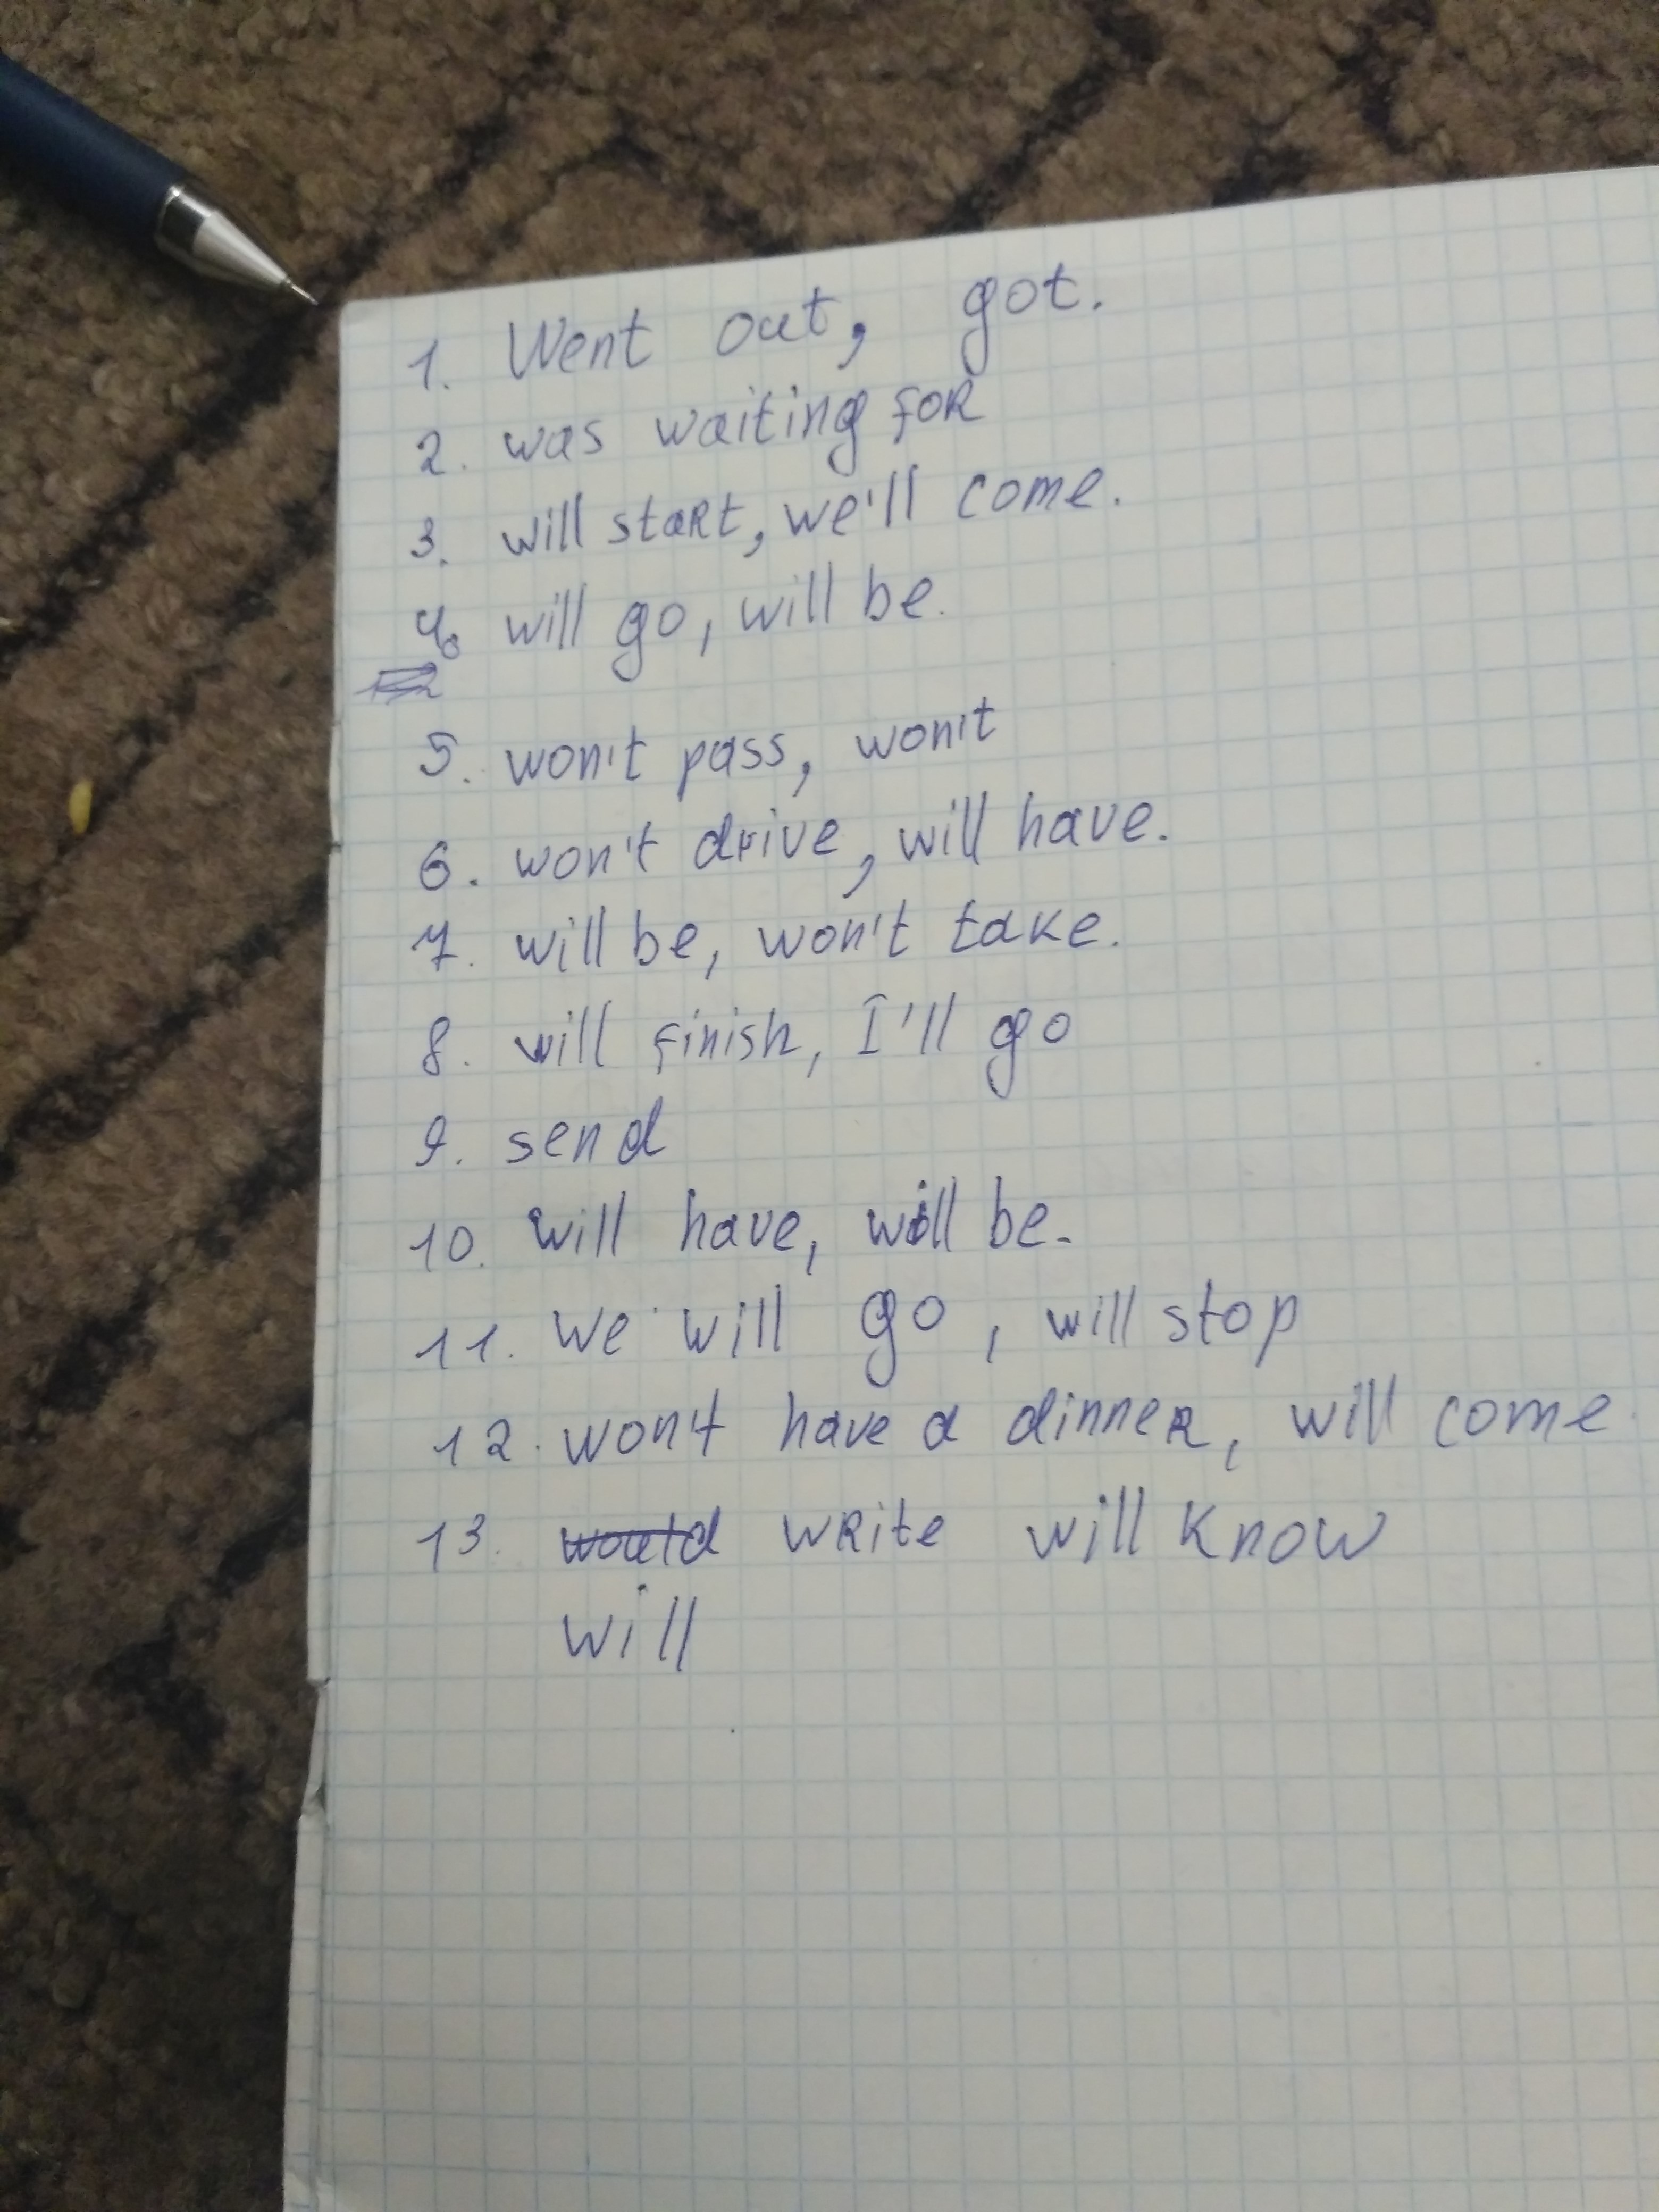 1. Went out, got.
2. was waiting for
3. will start, we'll come.
4. will go, will be.
5. won't pass, won't
6. won't drive, will have.
7. will be, won't take.
8. will finish, I'll go
9. send
10. will have, will be.
11. we will go, will stop
12. won't have a dinner, will come
13. would write will know
will